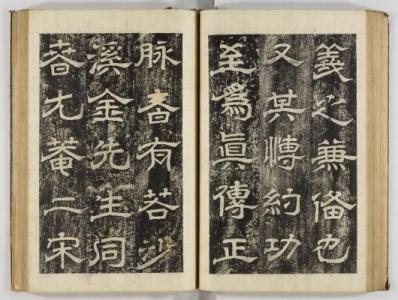 義之兼備也
又其愽約功
至爲眞傳正
脉者有若沙
溪金先生同
春尤菴二宋